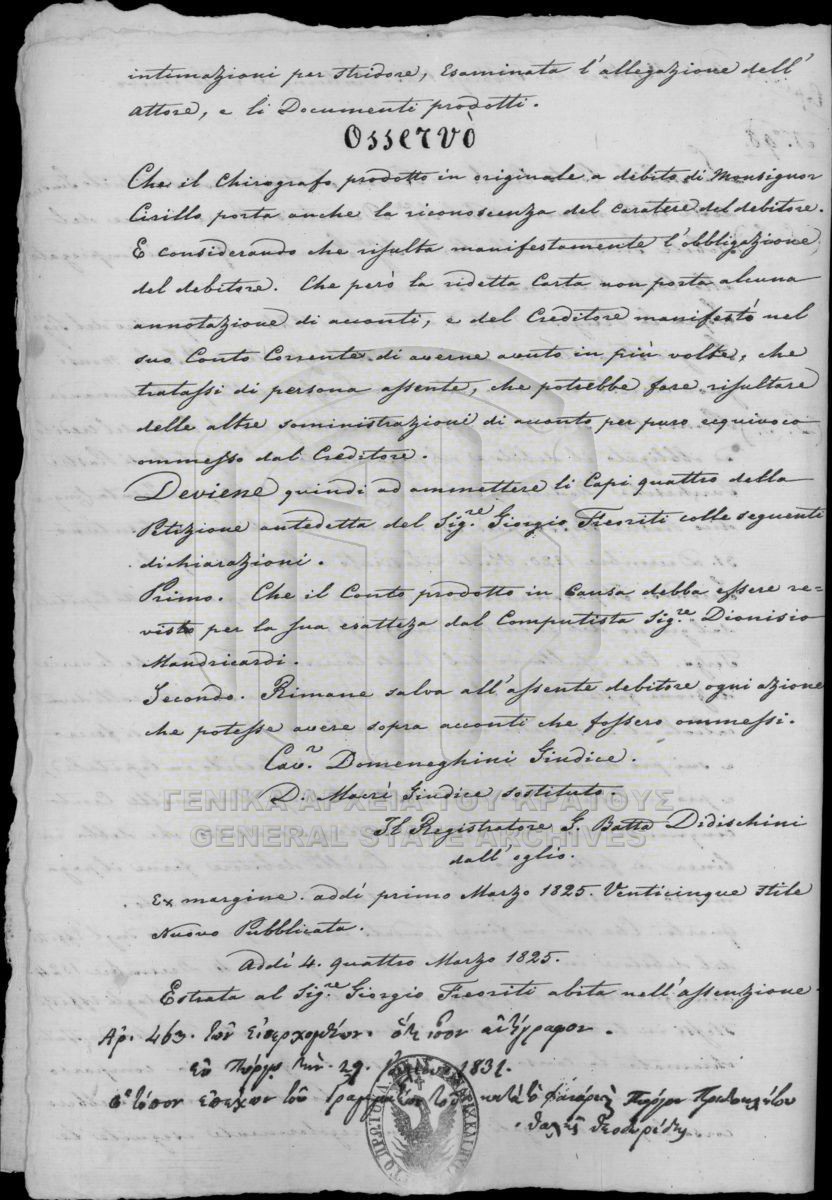 intimazioni per stridore, Esaminata l'allegazione dell'
attore, e li Documenti prodotti.
Osservò
Che il Chirografo prodotto in originale a debito di Monsignor
Cirillo porta anche la riconoscenza del caratere del debitore.
E considerando che risulta manifestamente l'obbligazione
del debitore. Che però la ridetta Carta non porta alcuna
annotazione di acconti, e del Creditore manifestò nel
suo Conto Corrente di averne avuto in più volte, che
tratassi di persona assente, che potrebbe fare risultare
delle altre soministrazioni di acconto per puro equivoco
ommesso dal Creditore.
Deviene quindi ad ammettere li Capi quattro della
Petizione antedetta del Sig.re Giorgio Treoriti colle seguenti
dichiarazioni.
Primo. Che il Conto prodotto in Causa debba essere re=
visto per la sua esatteza dal Computista Sig.re Dionisio
Mandricardi.
Secondo. Rimane salva all'assente debitore ogni azione
che potesse avere sopra acconti che fossero ommessi.
Cav.r Domeneghini Giudice.
D. Macrì Giudice sostituto.
Il Registratore G. Batta Didischini
dall'oglio.
Ex margine addì primo Marzo 1825. Venticinque stile
Nuovo Pubblicata.
Addì 4. quattro Marzo 1825.
Estrata al Sig.re Giorgio Treoriti abita nell'assenzione
Αρ. 463. τῶν εἰσερχομένων. ὅτι ἴσον ἀντίγραφον.
ἐν Πύργῳ τὴν 29. 1831.
ὁ τόπον ἐπέχων τοῦ Γραμματέως τοῦ κατὰ τὸν Πύργον Πρωτοκλήτου
ΓΕΝΙΚΑ ΑΡΧΕΙΑ ΤΟΥ ΚΡΑΤΟΥΣ
GENERAL STATE ARCHIVES